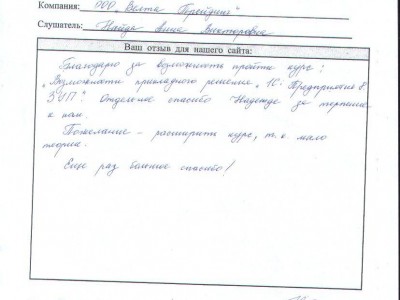 Компания: ООО „Велта Трейдинг"
Слушатель: Найда Анна Викторовна
Ваш отзыв для нашего сайта:
Благодарю за возможность пройти курс:
„Возможности прикладного решения „1С: Предприятия 8
ЗУП". Отдельное спасибо Надежде за терпение
к нам.
Пожелание – расширить курс, т.к. мало
теории.
Еще раз большое спасибо!